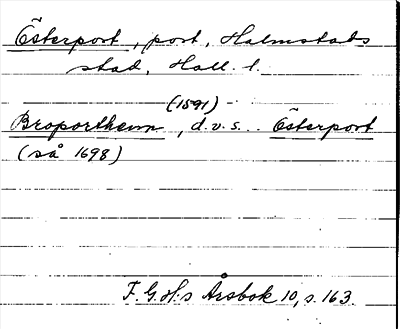 Österport, port, Halmstads
stad, Hall. l.
(1591) -
Broporthenn, d.v.s. Österport
(så 1698)
F.G.H:s Årsbok 10, s. 163